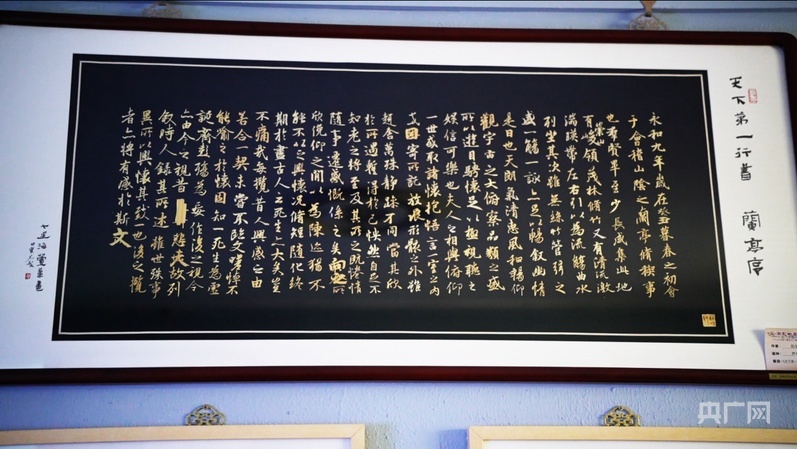 天下第一行書 蘭亭序
永和九年歲在癸丑暮春之初會
于會稽山陰之蘭亭脩稧事
也羣賢畢至少長咸集此地
有崇山峻領茂林脩竹又有清流激
湍暎帶左右引以為流觴曲水
列坐其次雖無絲竹管弦之
盛一觴一詠亦足以暢叙幽情
是日也天朗氣清惠風和暢仰
觀宇宙之大俯察品類之盛
所以遊目騁懷足以極視聽之
娛信可樂也夫人之相與俯仰
一世或取諸懷抱悟言一室之內
或因寄所託放浪形骸之外雖
趣舍萬殊靜躁不同當其欣
於所遇蹔得於己快然自足不
知老之將至及其所之既惓情
隨事遷感慨係之矣向之所
欣俛仰之閒以為陳迹猶不
能不以之興懷況脩短隨化終
期於盡古人云死生亦大矣豈
不痛哉每攬昔人興感之由
若合一契未嘗不臨文嗟悼不
能喻之於懷固知一死生為虛
誕齊彭殤為妄作後之視今
亦由今之視昔悲夫故列
敘時人錄其所述雖世殊事
異所以興懷其致一也後之攬
者亦將有感於斯文
央广网